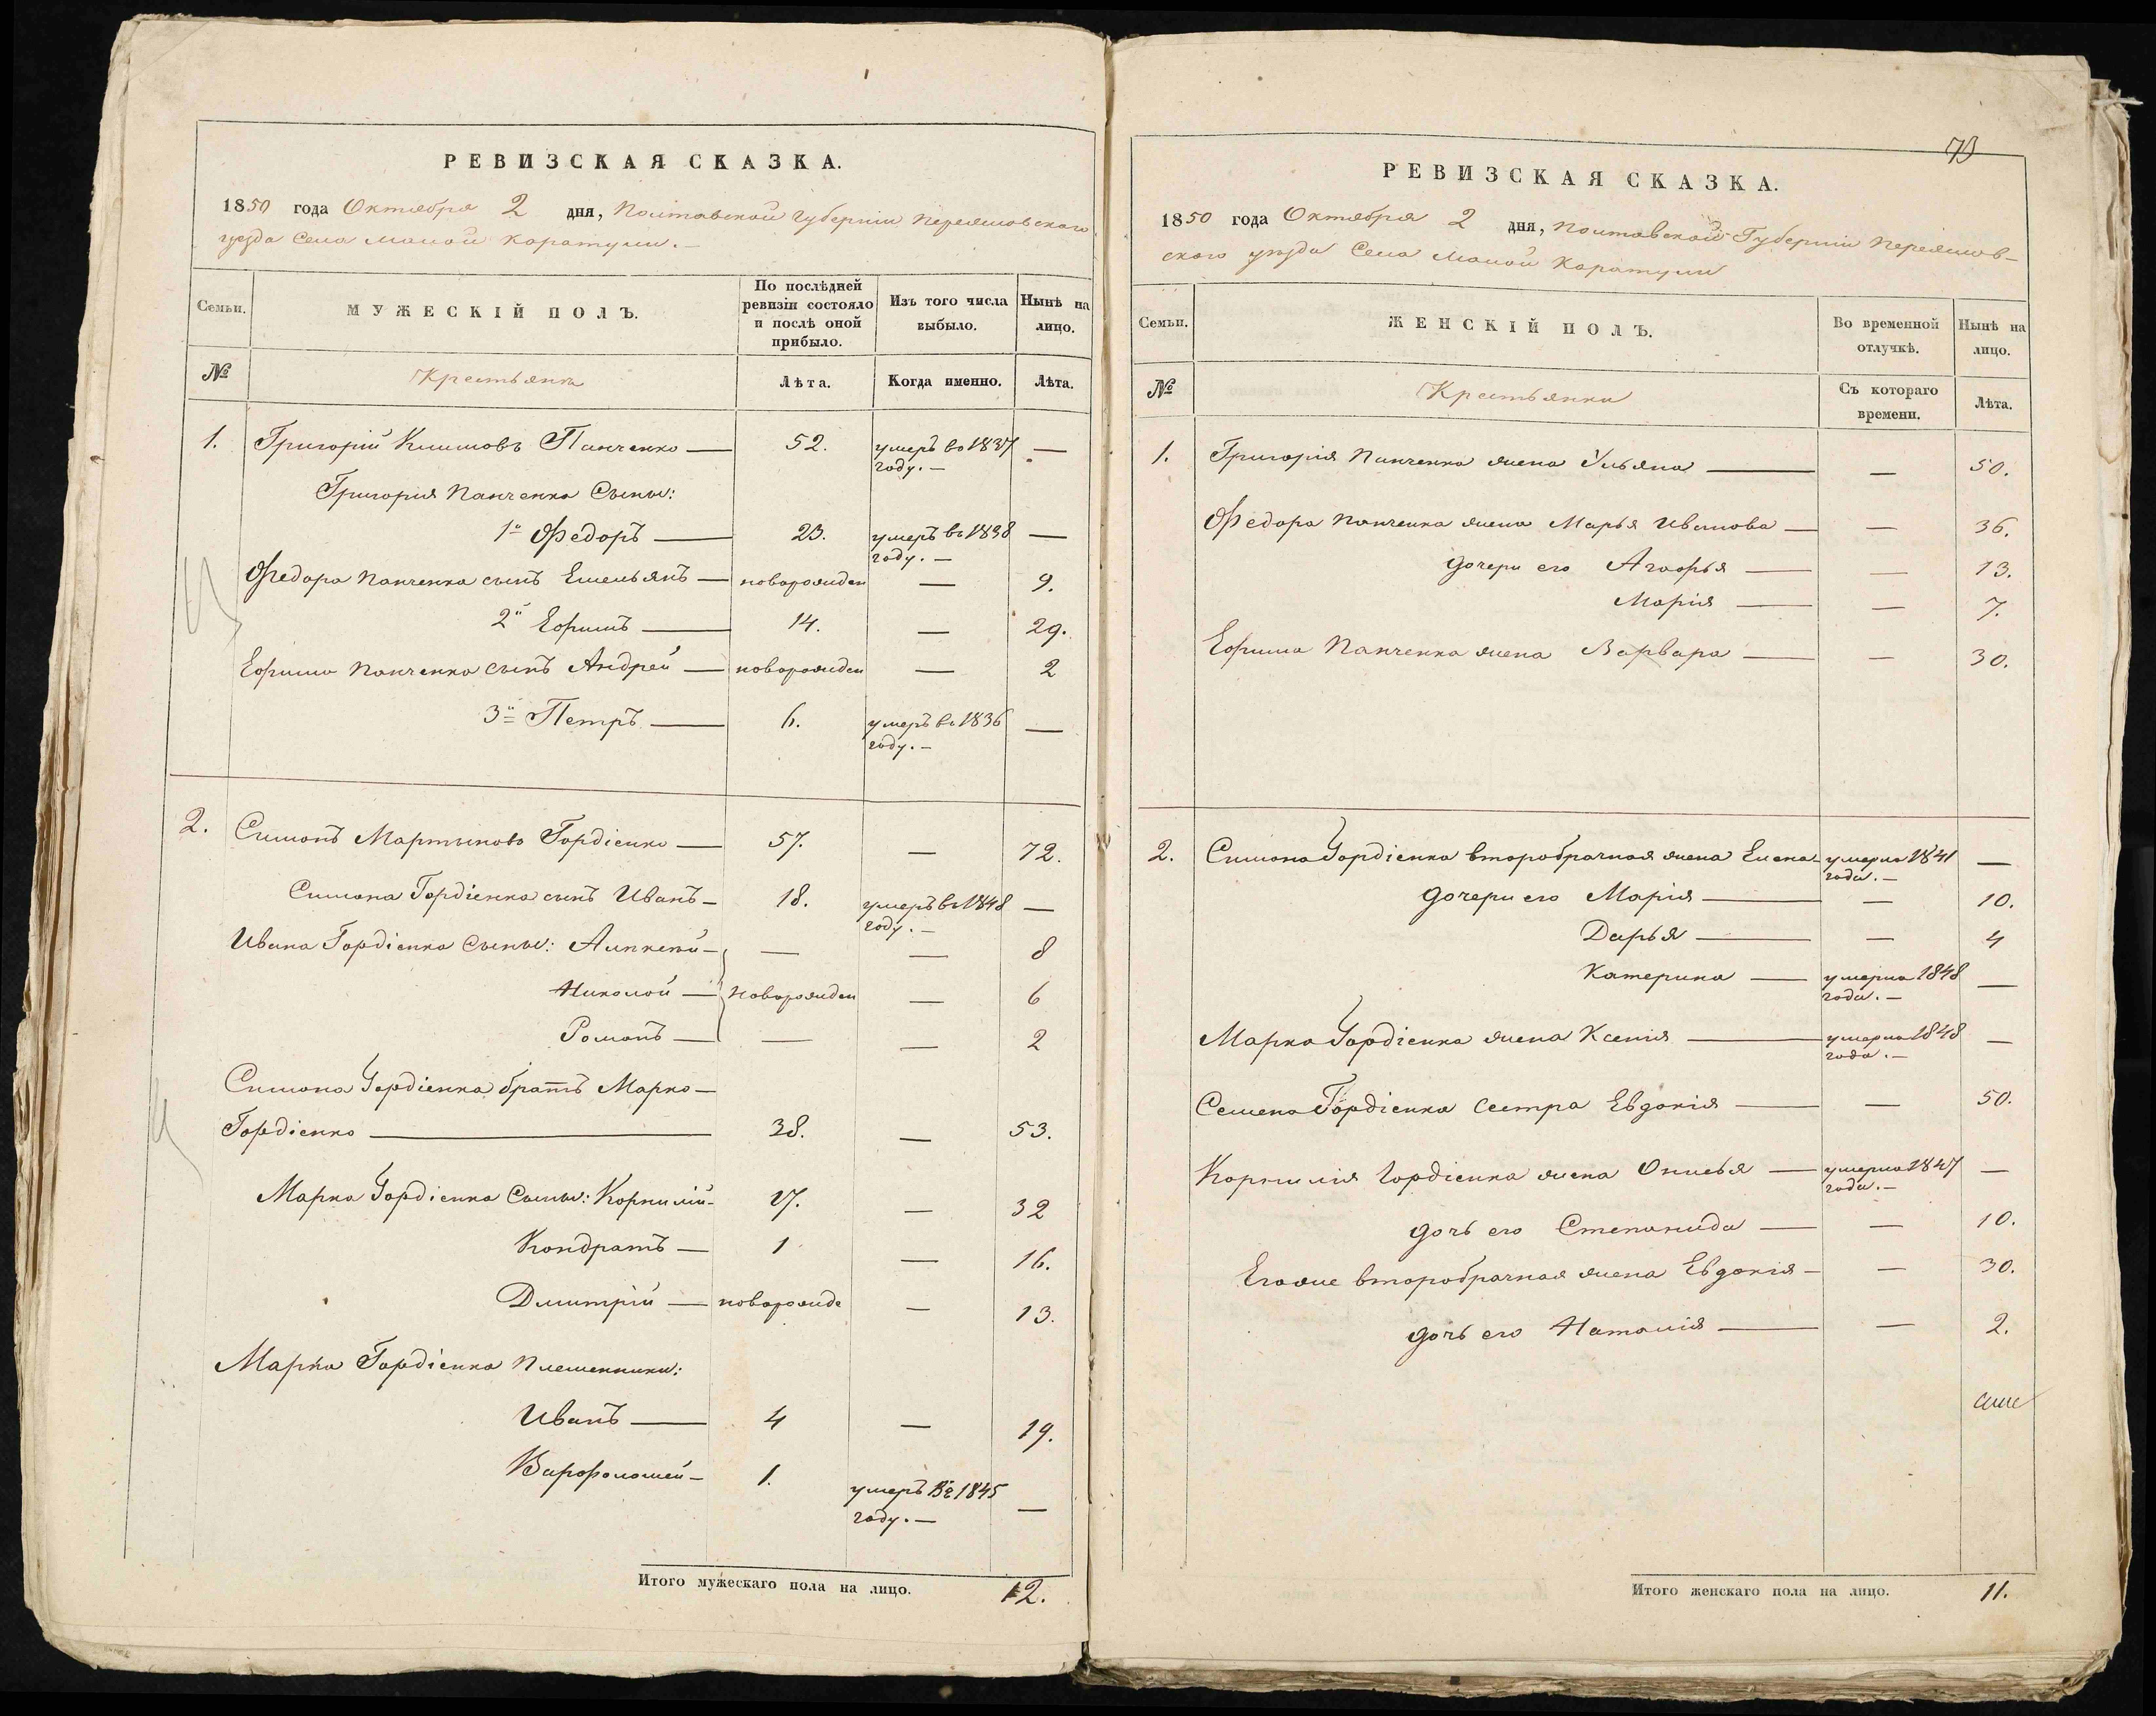 РЕВИЗСКАЯ СКАЗКА.
1850 года Октября 2 дня, Полтавской губерніи Переяловского
уезда Села Малой Каратули. —
Семьи. МУЖЕСКІЙ ПОЛЪ. По послѣдней ревизіи состояло и послѣ оной прибыло. Изъ того числа выбыло. Нынѣ на лицо.
№ Крестьяне Лѣта. Когда именно. Лѣта.
1. Григорій Климовъ Панченко — 52. умеръ во 1837 году. — —
Григорія Панченка Сыны:
1й Федоръ — 23. умеръ въ 1838 году. — —
Федора Панченка сынъ Емельянъ — новорожден — 9.
2й Ефимъ — 14. — 29.
Ефима Панченка сынъ Андрей — новорожден — 2
3й Петръ — 6. умеръ въ 1836 году. — —
2. Симонъ Мартыновъ Гордіенко — 57. — 72.
Симона Гордіенка сынъ Иванъ — 18. умеръ въ 1848 году. — —
Ивана Гордіенка Сыны: Алексѣй — — — 8
Николай — новорожден — 6
Романъ — — — 2
Симона Гордіенка братъ Марко —
Гордіенко — 38. — 53.
Марка Гордіенка Сыны: Корнилій — 17. — 32
Кондратъ — 1 — 16.
Дмитрій — новорожде — 13.
Марка Гордіенка Племенники:
Иванъ — 4 — 19.
Варфоломей — 1. умеръ Въ 1845 году. — —
Итого мужескаго пола на лицо. 12.
73
РЕВИЗСКАЯ СКАЗКА.
1850 года Октября 2 дня, Полтавской Губерніи Переялов-
ского уезда Села Малой Каратули
Семьи. ЖЕНСКІЙ ПОЛЪ. Во временной отлучкѣ. Нынѣ на лицо.
№ Крестьянки Съ котораго времени. Лѣта.
1. Григорія Панченка жена Ульяна — — 50.
Федора Панченка жена Марья Иванова — — 36.
дочери его Агафья — — 13.
Марія — — 7.
Ефима Панченка жена Варвара — — 30.
2. Симона Гордіенка второбрачная жена Елена — умерла 1841 года. — —
дочери его Марія — — 10.
Дарья — — 4
Катерина — умерла 1848 года. — —
Марка Гордіенка жена Ксенія — умерла 1848 года. — —
Семена Гордіенка сестра Евдокія — — 50.
Корнилія Гордіенка жена Онисья — умерла 1847 года. — —
дочь его Степанида — — 10.
Егоже второбрачная жена Евдокія — — 30.
дочь его Наталія — — 2.
Итого женскаго пола на лицо. 11.